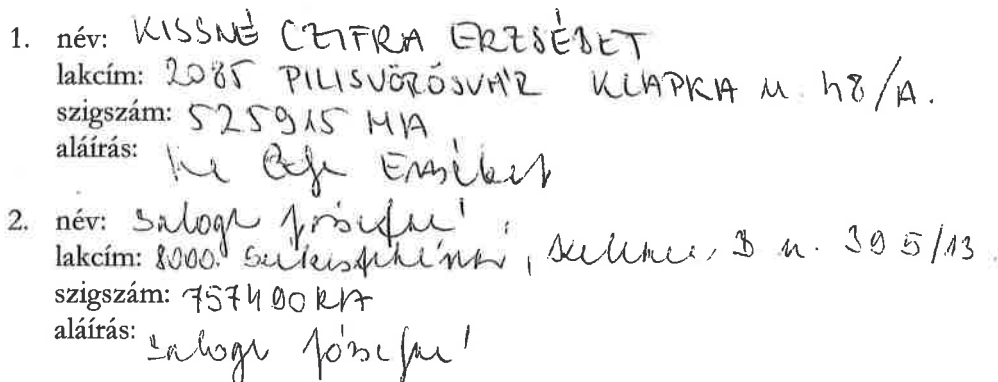 1. név: KISSNÉ CZIFRA ERZSÉBET
lakcím: 2085 PILISVÖRÖSVÁR KLAPKA u. 48/A.
szigszám: 525915 MA
aláírás: Erzsébet
2. név: Balogh Józsefné
lakcím: 8000. Székesfehérvár, u. 5/13
szigszám: 757490 RA
aláírás: Balogh Józsefné